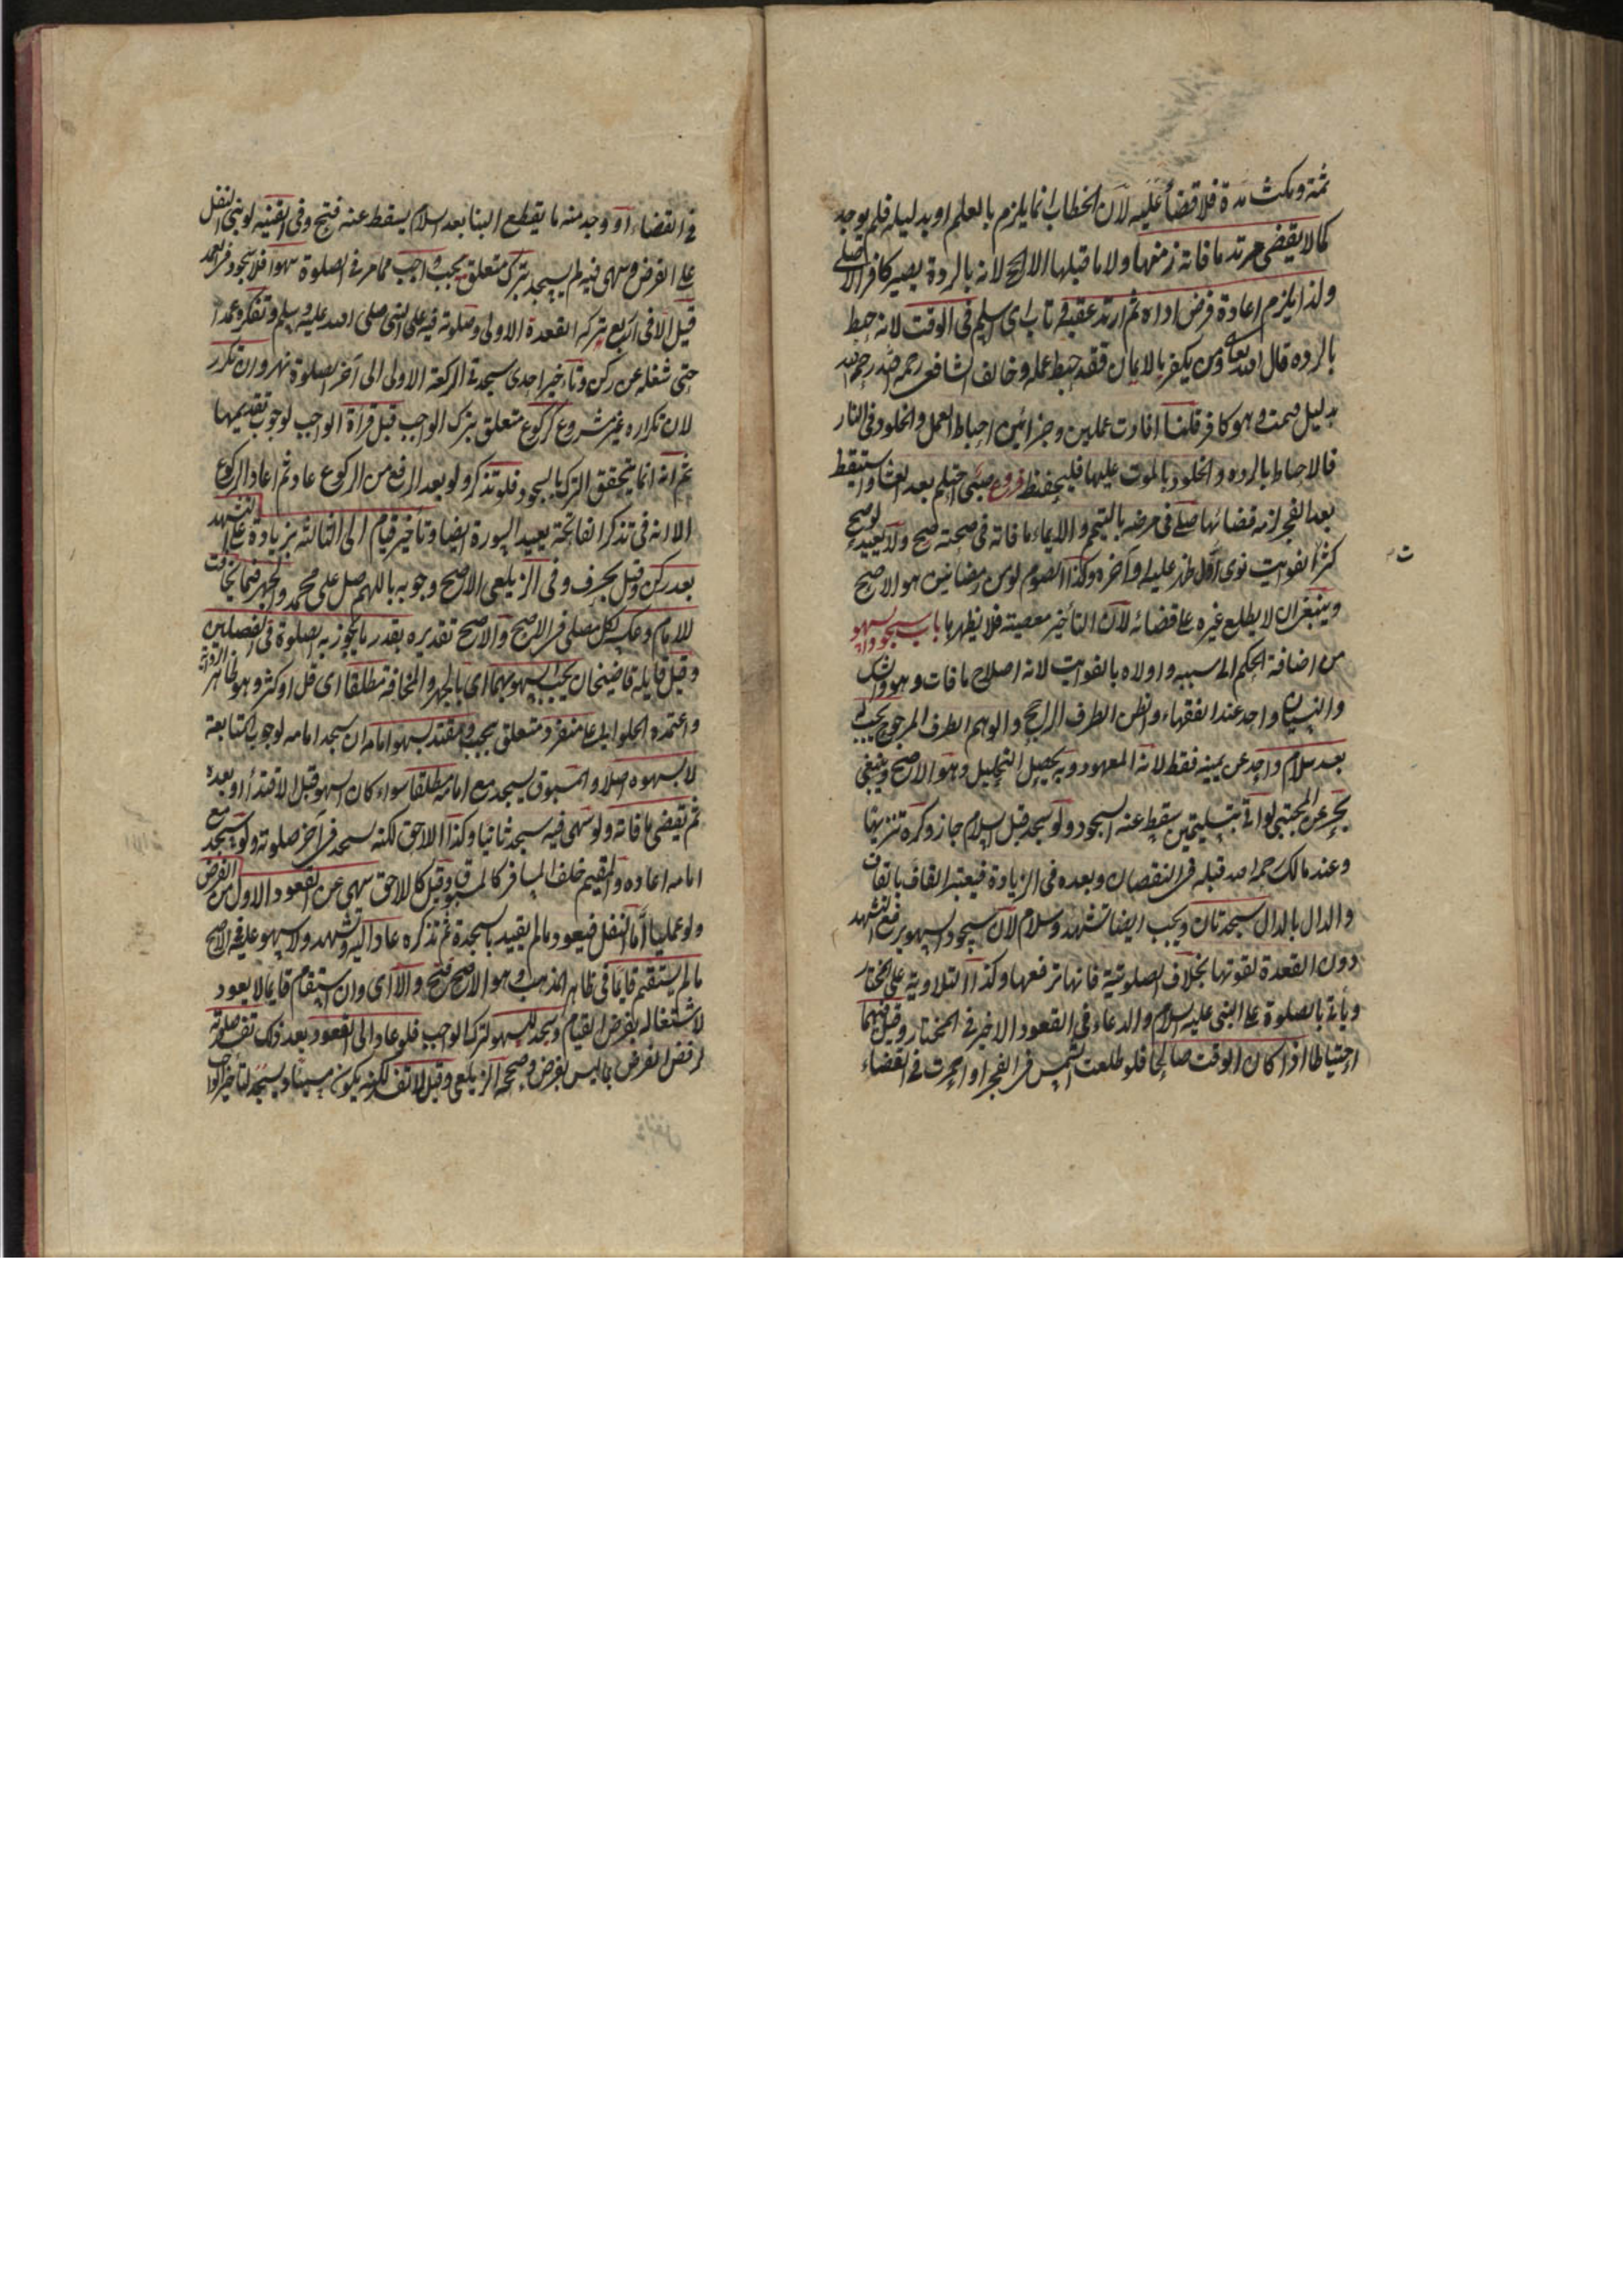 ثمة ومكث مدة فلا قضاء عليه لان الخطاب انما يلزم بالعلم او بدليله فلم يوجد
كما لا يقضى مرتد ما فاته زمنها ولا ما قبلها الا الحج لانه بالردة يصير كافرا لاصلى
ولذا يلزم اعادة فرض اداه ثم ارتد عقبه وتاب اى اسلم فى الوقت لانه حبط
بالرده قال الله تعالى ومن يكفر بالايمان فقد حبط عمله وخالف الشافعى رحمه الله
بدليل فيمت وهو كافر قلنا افادت عملين وجزائين احباط العمل والخلود فى النار
فالاحباط بالرده والخلود بالموت عليها فليحفظ فروع صبى احتلم بعد العشا واستيقظ
بعد الفجر لزمه قضائها صلى فى مرضه بالتيمم والايماء ما فاته فى صحته صح ولا يعيد لو صح
كثرة الفوايت نوى اول ظهر عليه او آخره وكذا الصوم لو من رمضانين هو الاصح
وينبغى ان لا يطلع غيره على قضائه لان التأخير معصية فلا يظهرها باب سجود السهو
من اضافة الحكم الى سببه واولاه بالفوايت لانه اصلاح ما فات وهو والشك
والنسيان واحد عند الفقهاء والظن الطرف الراجح والوهم الطرف المرجوح يجب له
بعد سلام واحد عن يمينه فقط لانه المعهود وبه يحصل التحليل وهو الاصح وينبغى
بحر عن المجتبى لو اتى بتسليمتين سقط عنه السجود ولو سجد قبل السلام جاز وكره تنزيها
وعند مالك رحمه الله قبله فى النقصان وبعده فى الزيادة فيعتبر القاف بالقاف
والدال بالدال سجدتان ويجب ايضا تشهد وسلام لان سجود السهو يرفع التشهد
دون القعدة لقوتها بخلاف الصلوتية فانها ترفعها وكذا التلاوية على المختار
ويأتى بالصلوة على النبى عليه السلام والدعاء فى القعود الاخير فى المختار وقيل فيهما
احتياطا اذا كان الوقت صالحا فلو طلعت الشمس فى الفجر او احمرت فى القضاء
فى القضاء او وجد منه ما يقطع البنا بعد السلام يسقط عنه فتح وفى القنيه لو بنى النفل
على الفرض وسهى فيه لم يسجد بترك متعلق بيجب واجب مما مر فى الصلوة سهوا فلا سجود فى العمد
قيل الا فى اربع تركه القعدة الاولى وصلوته فيه على النبى صلى الله عليه وسلم وتفكره عمدا
حتى شغله عن ركن وتأخير احدى سجدتى الركعة الاولى الى آخر الصلوة نهر وان تكرر
لان تكراره غير مشروع كركوع متعلق بترك الواجب قبل قراة الواجب لوجوب تقديمها
ثم انه انما يتحقق الترك بالسجود فلو تذكر ولو بعد الرفع من الركوع عاد ثم اعاد الركوع
الا انه فى تذكر الفاتحة يعيد السورة ايضا وتأخير قيام الى الثالثة بزيادة على التشهد
بقدر ركن وقيل بحرف وفى الزيلعى الاصح وجوبه باللهم صل على محمد والجهر فيما يخافت
للامام وعكسه لكل مصلى فى الاصح والاصح تقديره بقدر ما تجوز به الصلوة فى الفصلين
وقيل قايله قاضيخان يجب السهو بهما اى بالجهر والمخافة مطلقا اى قل او كثر وهو ظاهر الرواية
واعتمده الحلوانى على منفرد متعلق بيجب ومقتد بسهو امامه ان سجد امامه لوجوب المتابعة
لا بسهوه اصلا والمسبوق يسجد مع امامه مطلقا سواء كان السهو قبل الاقتداء او بعده
ثم يقضى ما فاته ولو سهى فيه سجد ثانيا وكذا اللاحق لكنه يسجد فى آخر صلوته ولو سجد مع
امامه اعاده والمقيم خلف المسافر كالمسبوق وقيل كاللاحق سهى عن القعود الاول من الفرض
ولو عمليا اما النفل فيعود ما لم يقيد بالسجدة ثم تذكره عاد اليه وتشهد ولا سهو عليه فى الاصح
ما لم يستقم قايما فى ظاهر المذهب وهو الاصح فتح والا اى وان استقام قايما لا يعود
لاشتغاله بفرض القيام وسجد للسهو لترك الواجب فلو عاد الى القعود بعد ذلك تفسد صلوته
لرفض الفرض بما ليس بفرض وصححه الزيلعى وقيل لا تفسد لكنه يكون مسيئا ويسجد لتأخير الواجب